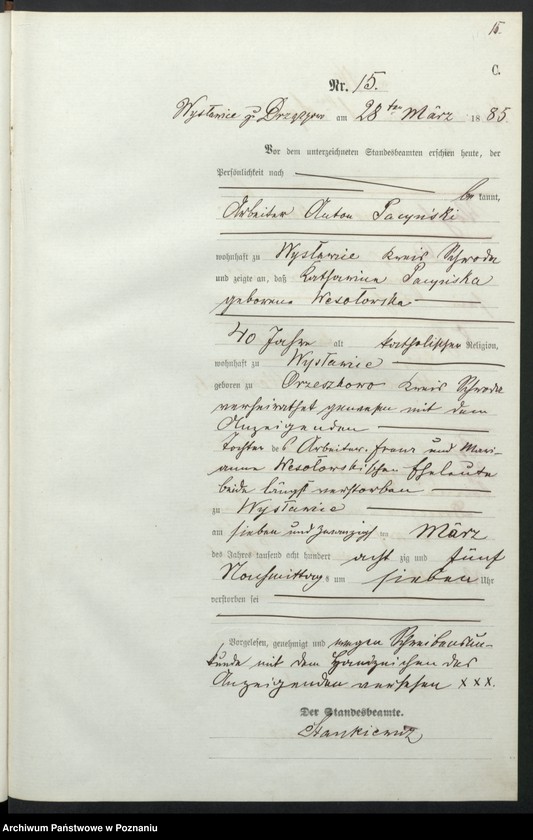 15.
C.
Nr. 15.
Wysławice z. Drzązgowo am 28ten März 1885.
Vor dem unterzeichneten Standesbeamten erschien heute, der
Persönlichkeit nach
bekannt,
Arbeiter Anton Pacyński
wohnhaft zu Wysławice Kreis Schroda
und zeigte an, daß Katharina Pacyńska
geborene Wesołowska
40 Jahre alt katholischer Religion,
wohnhaft zu Wysławice
geboren zu Orzeszkowo Kreis Schroda
verheirathet gewesen mit dem
Anzeigenden
Tochter des Arbeiter Franz und Mari-
anna Wesołowskischen Eheleute
beide längst verstorben
zu Wysławice
am sieben und zwanzigst en März
des Jahres tausend acht hundert acht zig und fünf
Nachmittags um sieben Uhr
verstorben sei
Vorgelesen, genehmigt und wegen Schreibensun-
kunde mit dem Handzeichen des
Anzeigenden versehen XXX.
Der Standesbeamte.
Stankiewicz
Archiwum Państwowe w Poznaniu